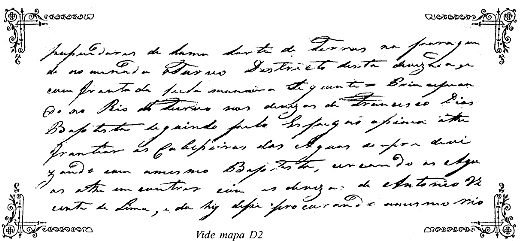 de huma sorte de Terras na paragem
denominada Turvo Districto desta
confrontada pela maneira seguinte = Principian
do no Rio do Turvo nas divizas de Francisco Dias
Baptista seguindo pelo Espigão acima athe
frontiar as Cabeçeiras das Agoas
com o mesmo Baptista, cercando as Ago
as athe encontrar com as divizas de Antonio Vi
cente de Lima, e dahy procurando o mesmo rio
Vide mapa D2